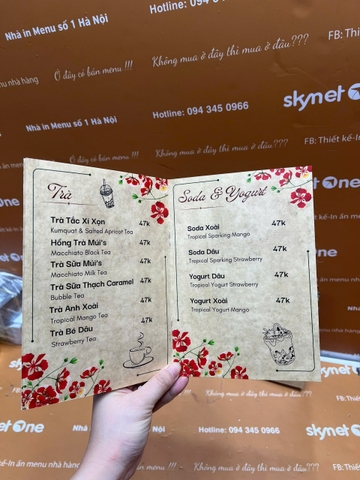 Nhà in Menu số 1 Hà Nội
Hotline: 094 345 0966
FB: Thiết
nhà hàng
Ở đây có bán menu !!!
Không mua ở đây thì mua ở đâu???
skynet One
Nhà in Menu số 1 Hà Nội
Hotline: 094 345 0966
FB: Thiết
Ở đây có bán menu !!!
Không mua ở đây thì mua ở đâu???
Trà
Trà Tắc Xí Xọn 47k
Kumquat & Salted Apricot Tea
Hồng Trà Múi's 47k
Macchiato Black Tea
Trà Sữa Múi's 47k
Macchiato Milk Tea
Trà Sữa Thạch Caramel 47k
Bubble Tea
Trà Anh Xoài 47k
Tropical Mango Tea
Trà Bé Dâu 47k
Strawberry Tea
Soda & Yogurt
Soda Xoài 47k
Tropical Sparking Mango
Soda Dâu 47k
Tropical Sparking Strawberry
Yogurt Dâu 47k
Tropical Yogurt Strawberry
Yogurt Xoài 47k
Tropical Yogurt Mango
skynet One
Hotline: 094 345 0966
FB: Thiết
kế-In ấn menu nhà hàng
menu !!!
Không mua ở đây thì mua ở đâu???